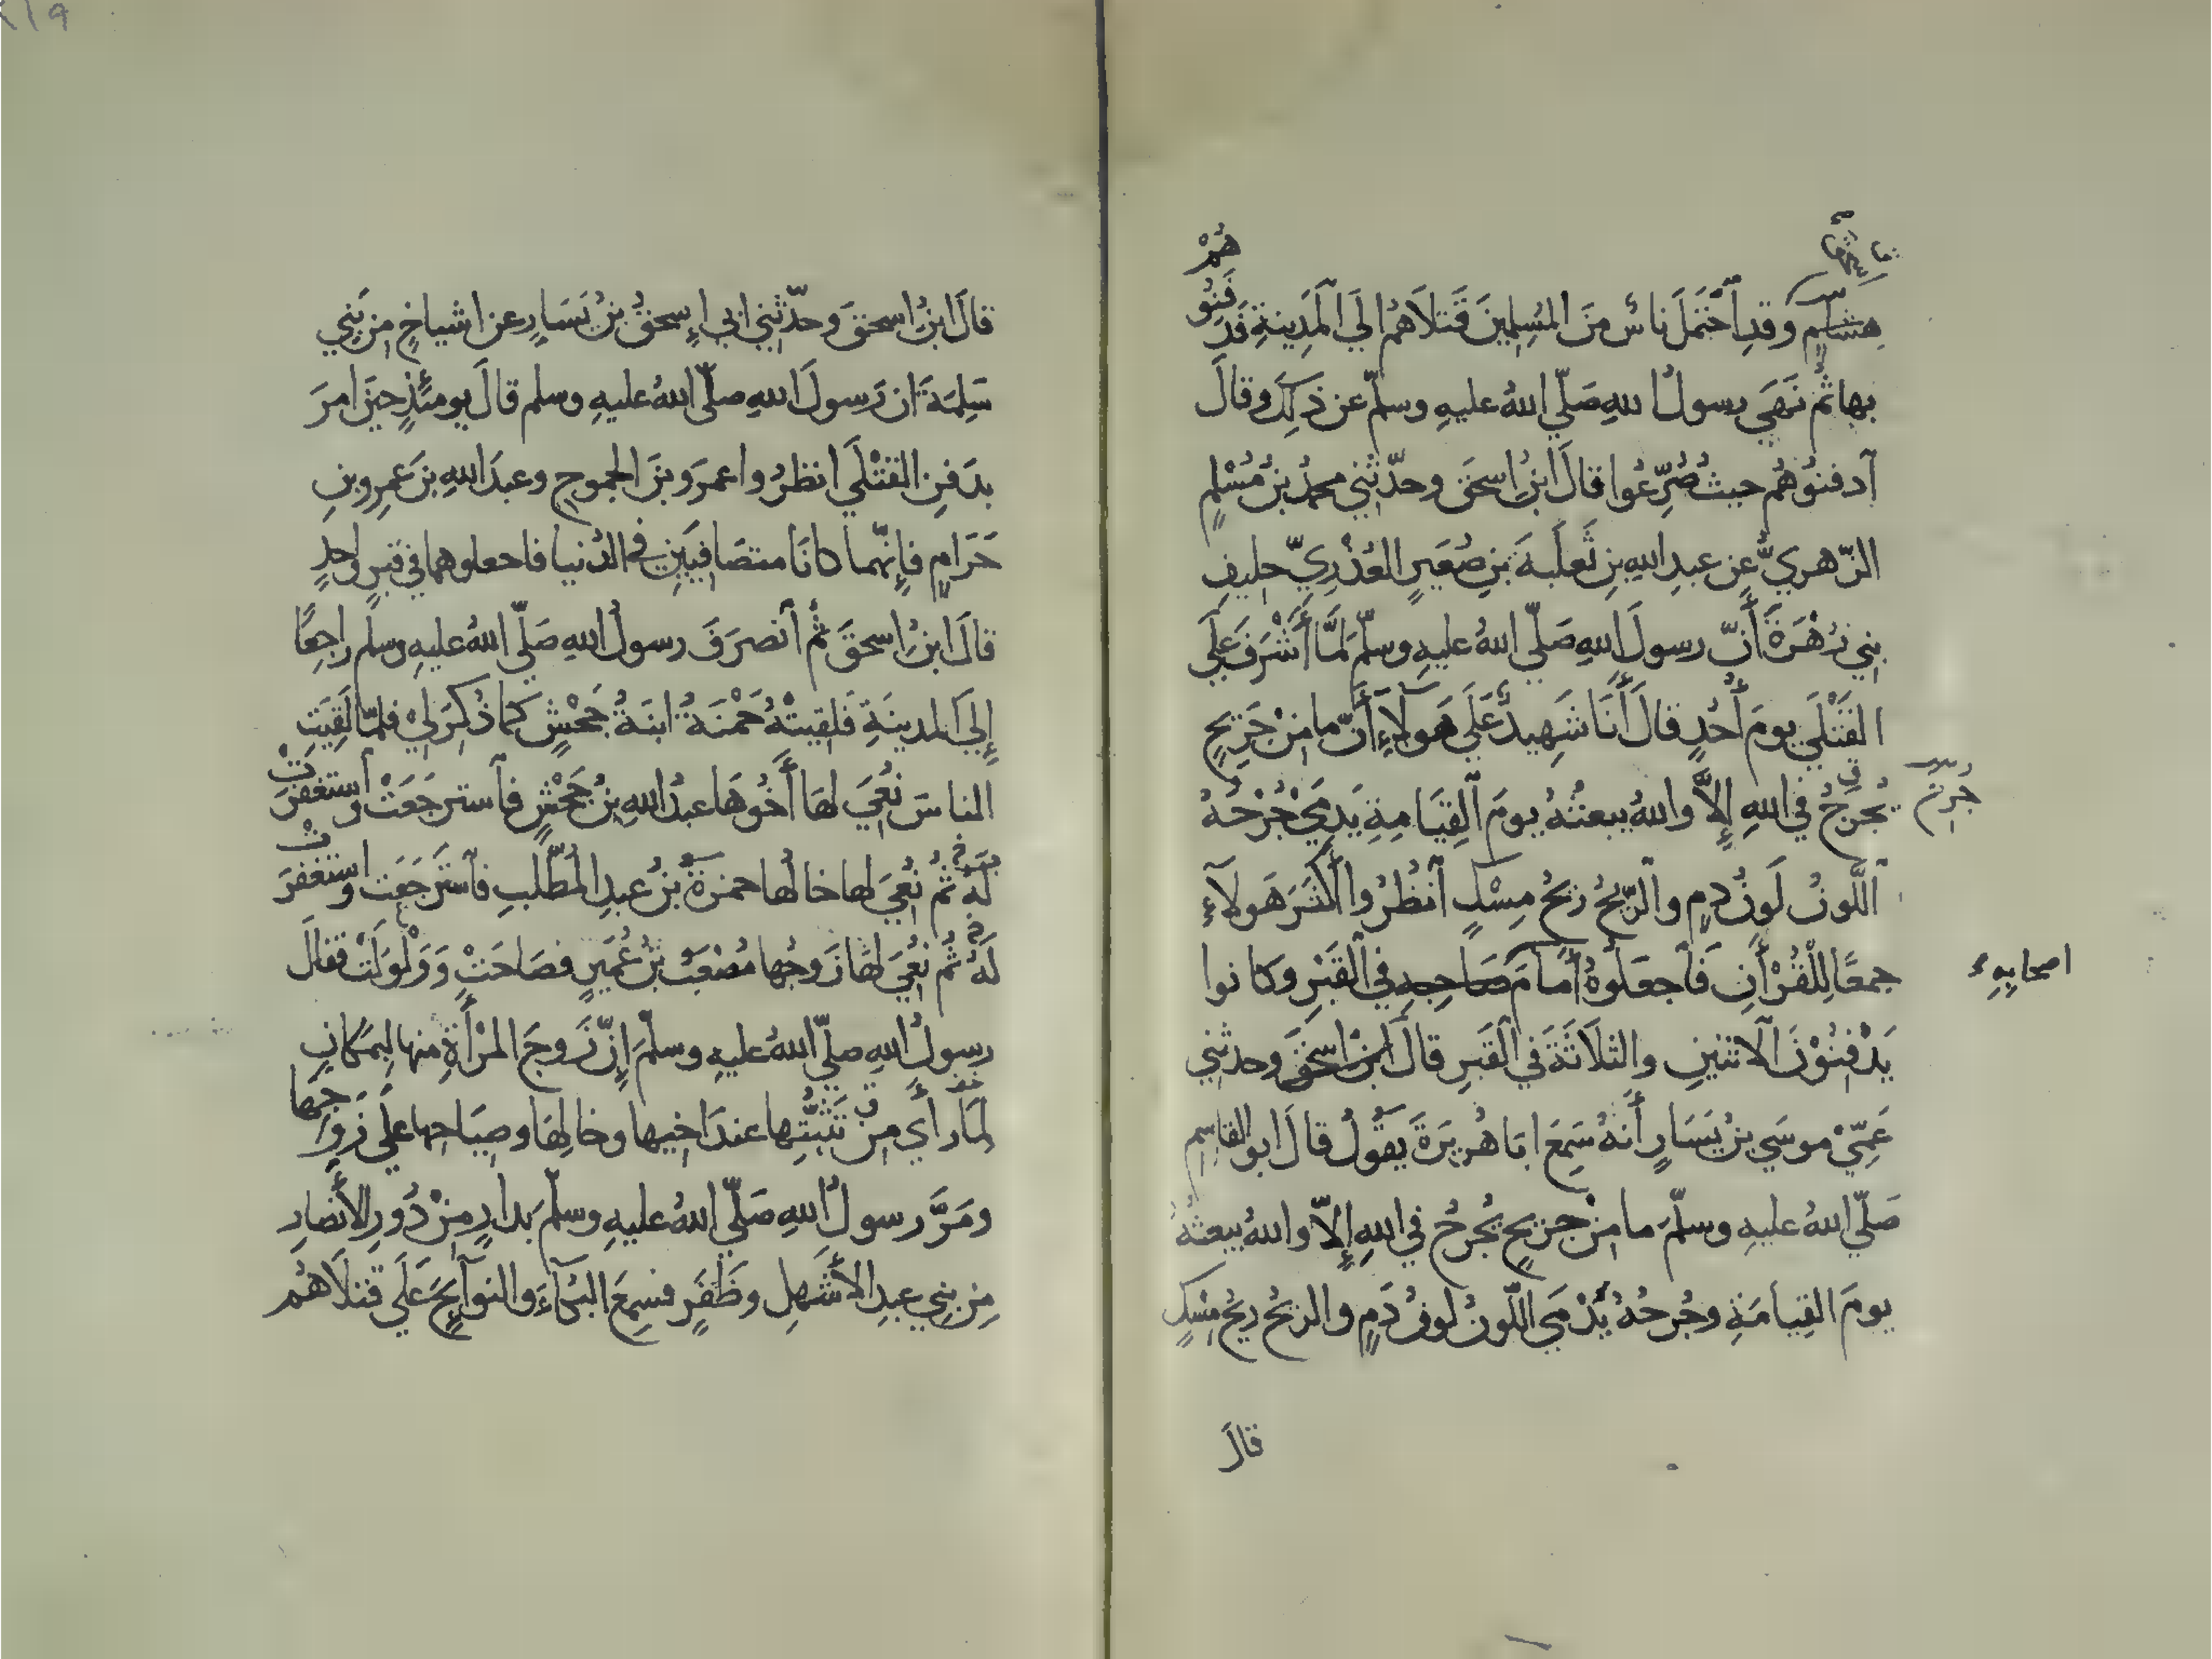 هشام وقد احتمل ناس من المسلمين قتلاهم الي المدينة فدفنوهم
بها ثم نهي رسول الله صلي الله عليه وسلم عن ذلك وقال
آدفنوهم حيث صرعوا قال ابن اسحق وحدثني محمد بن مسلم
الزهري عن عبد الله بن ثعلبة بن صعير العذري حليف
بني زهرة أن رسول الله صلي الله عليه وسلم لما أشرف علي
القتلي يوم أحد قال أنا شهيد علي هولآء أن ما من جريح
يجرح في الله إلا والله يبعثه يوم القيامة يدمي جرحه
اللون لون دم والريح ريح مسك آنظروا أكثر هولآء
جمعا للقرأن فآجعلوه أمام صاحبه في القبر وكانوا
اصحابه
يدفنون الاثنين والثلاثة في القبر قال ابن اسحق وحدثني
عمي موسي بن يسار أنه سمع ابا هريرة يقول قال ابو القاسم
صلي الله عليه وسلم ما من جريح يجرح في الله إلا والله يبعثه
يوم القيامة وجرحه يدمي اللون لون دم والريح ريح مسك
قال
قال ابن اسحق وحدثني ابي إسحق بن يسار عن اشياخ من بني
سلمة ان رسول الله صلي الله عليه وسلم قال يومئذ حين امر
بدفن القتلي انظروا عمرو بن الجموح وعبد الله بن عمرو بن
حرام فإنهما كانا متصافيين في الدنيا فاجعلوهما في قبر واحد
قال ابن اسحق ثم آنصرف رسول الله صلي الله عليه وسلم راجعا
إلي المدينة فلقيته حمنة ابنة جحش كما ذكر لي فلما لقيت
الناس نعي لها أخوها عبد الله بن جحش فآسترجعت واستغفرت
له ثم نعي لها خالها حمزة بن عبد المطلب فآسترجعت واستغفرت
له ثم نعي لها زوجها مصعب بن عمير فصاحت وولولت فقال
رسول الله صلي الله عليه وسلم إن زوج المرأة منها لبمكان
لما رأي من تثبتها عند اخيها وخالها وصياحها علي زوجها
ومر رسول الله صلي الله عليه وسلم بدار من دور الأنصار
من بني عبد الأشهل وظفر فسمع البكآء والنوآيح علي قتلاهم